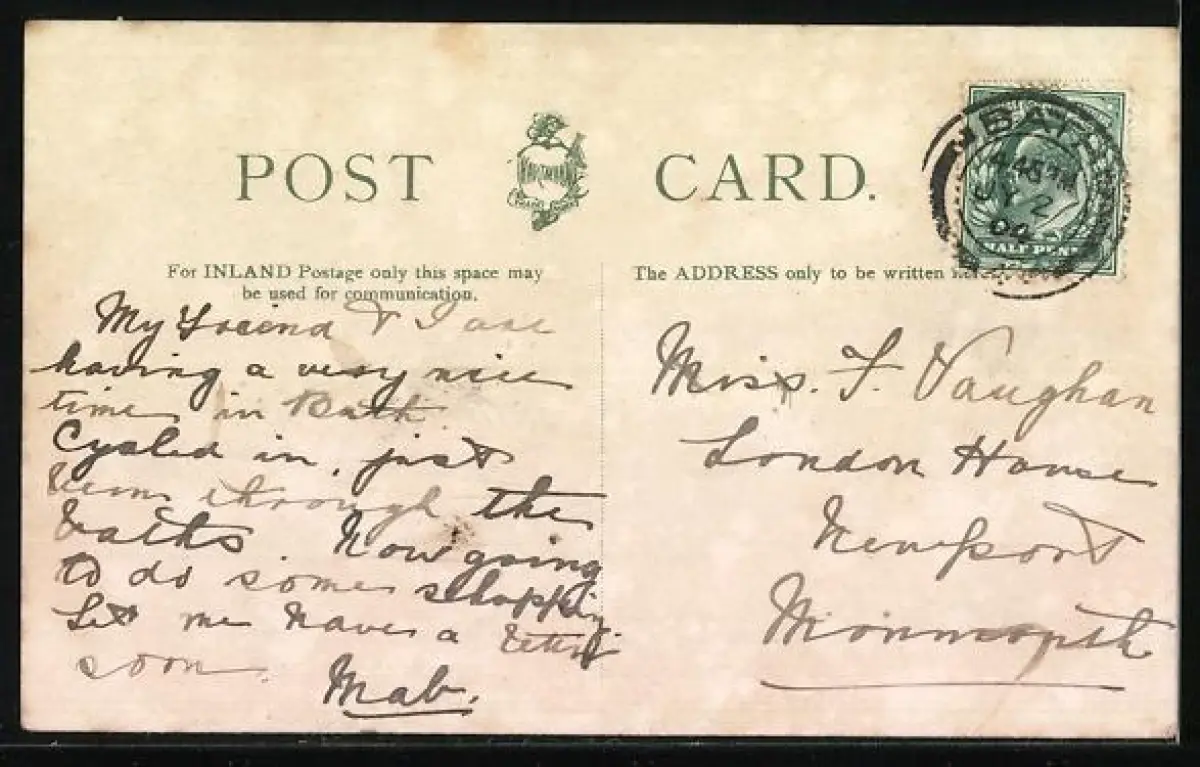 POST CARD.
For INLAND Postage only this space may
be used for communication.
The ADDRESS only to be written
BATH
4.45PM
JY 2
04
HALFPENNY
My friend & I are
having a very nice
time in Bath
Cycled in, just
been through the
baths. Now going
to do some shopping
Let me have a letter
soon.
Mab.
Miss. F. Vaughan
London House
Newport
Monmouth